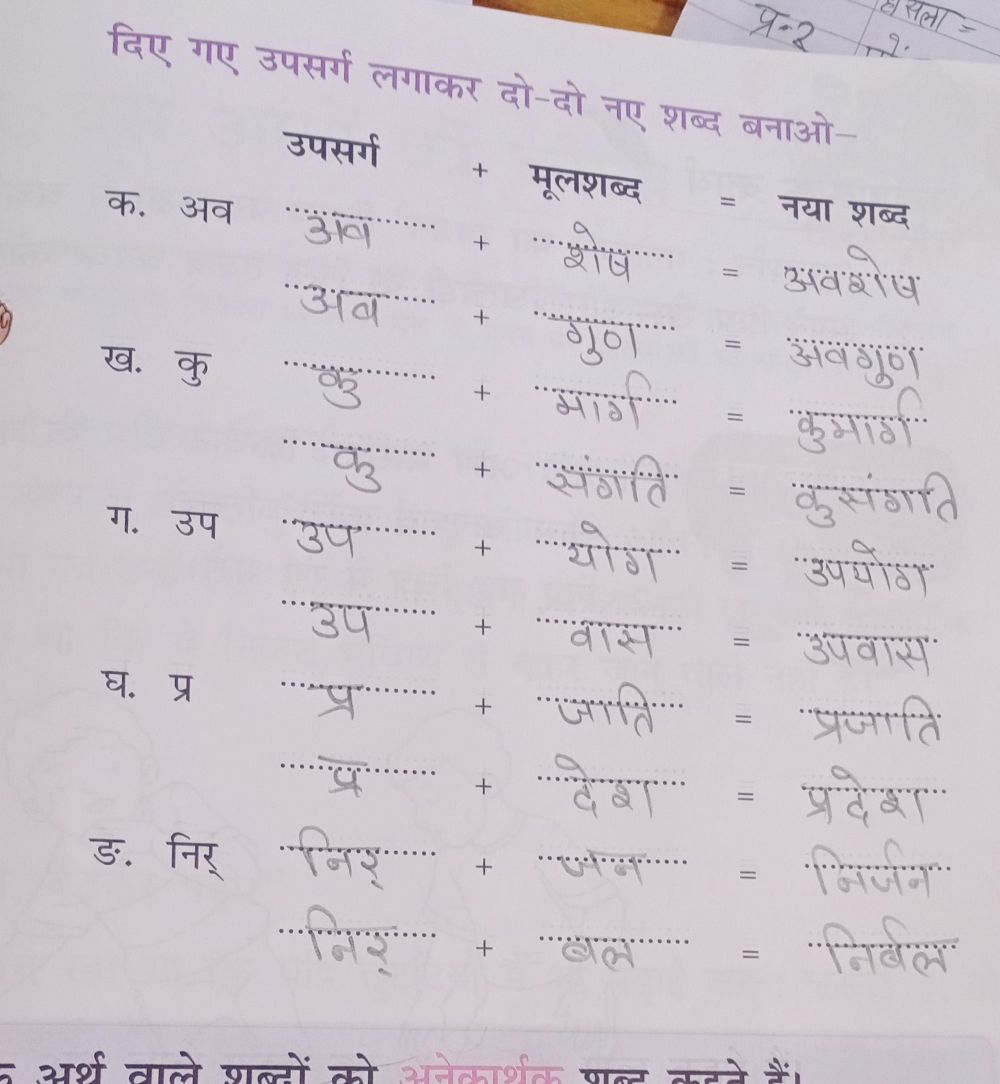 प्र-2
दिए गए उपसर्ग लगाकर दो-दो नए शब्द बनाओ–
उपसर्ग + मूलशब्द = नया शब्द
क. अव अव + शेष = अवशेष
अव + गुण = अवगुण
ख. कु कु + मार्ग = कुमार्ग
कु + संगति = कुसंगति
ग. उप उप + योग = उपयोग
उप + वास = उपवास
घ. प्र प्र + जाति = प्रजाति
प्र + देश = प्रदेश
ङ. निर् निर् + जन = निर्जन
निर् + बल = निर्बल
अर्थ वाले शब्दों को अनेकार्थक शब्द कहते हैं।